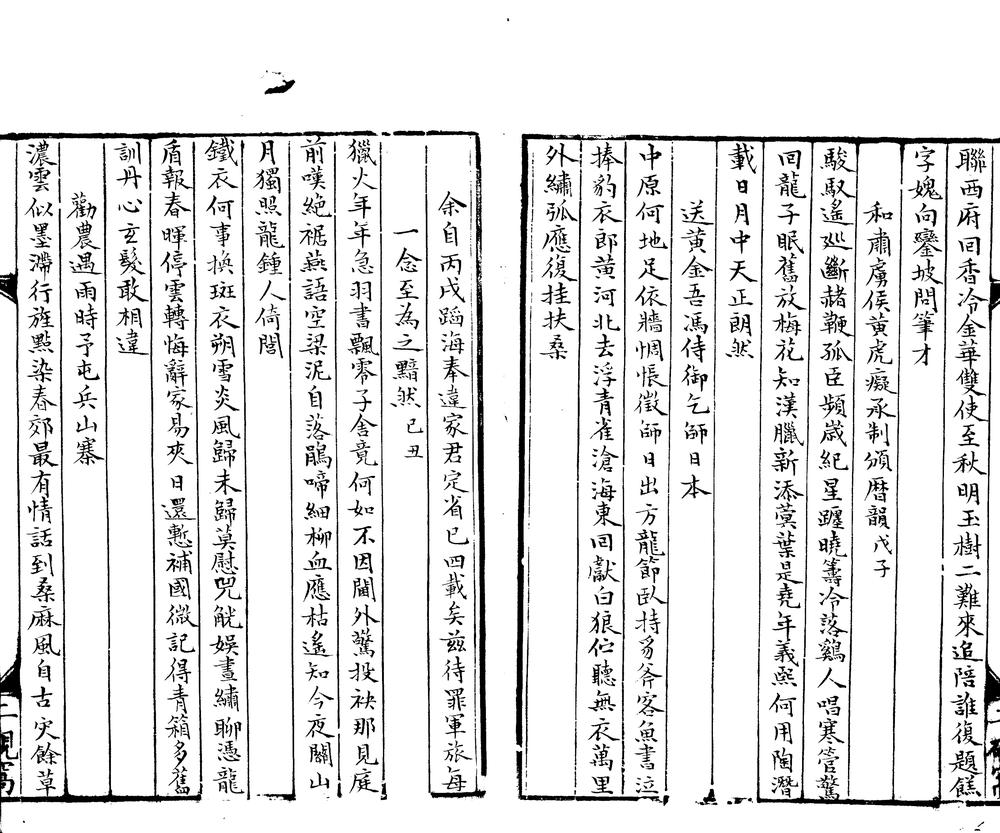 聯西府回香冷金華雙使至秋明玉樹二難來追陪誰復題餻
字媿向鑾坡問筆才
和肅虜侯黃虎癡承制頒曆韻戊子
駿馭遙巡斷赭鞭孤臣頻歲紀星躔曉籌冷落鷄人唱寒管驚
回龍子眠舊放梅花知漢臘新添蓂葉是堯年義熙何用陶潛
載日月中天正朗然
送黃金吾馮侍御乞師日本
中原何地足依牆惆悵徵師日出方龍節臥持豸斧客魚書泣
捧豹衣郎黃河北去浮青雀滄海東回獻白狼佇聽無衣萬里
外繡弧應復挂扶桑
余自丙戌蹈海奉違家君定省已四載矣茲待罪軍旅每
一念至為之黯然己丑
獵火年年急羽書飄零子舍竟何如不因閫外驚投袂那見庭
前嘆絕裾燕語空梁泥自落鵑啼細柳血應枯遙知今夜關山
月獨照龍鍾人倚閭
鐵衣何事換斑衣朔雪炎風歸未歸莫慰兕觥娛晝繡聊憑龍
盾報春暉停雲轉悔辭家易夾日還慙補國微記得青箱多舊
訓丹心玄髮敢相違
勸農遇雨時予屯兵山寨
濃雲似墨滯行旌點染春郊最有情話到桑麻風自古灾餘草